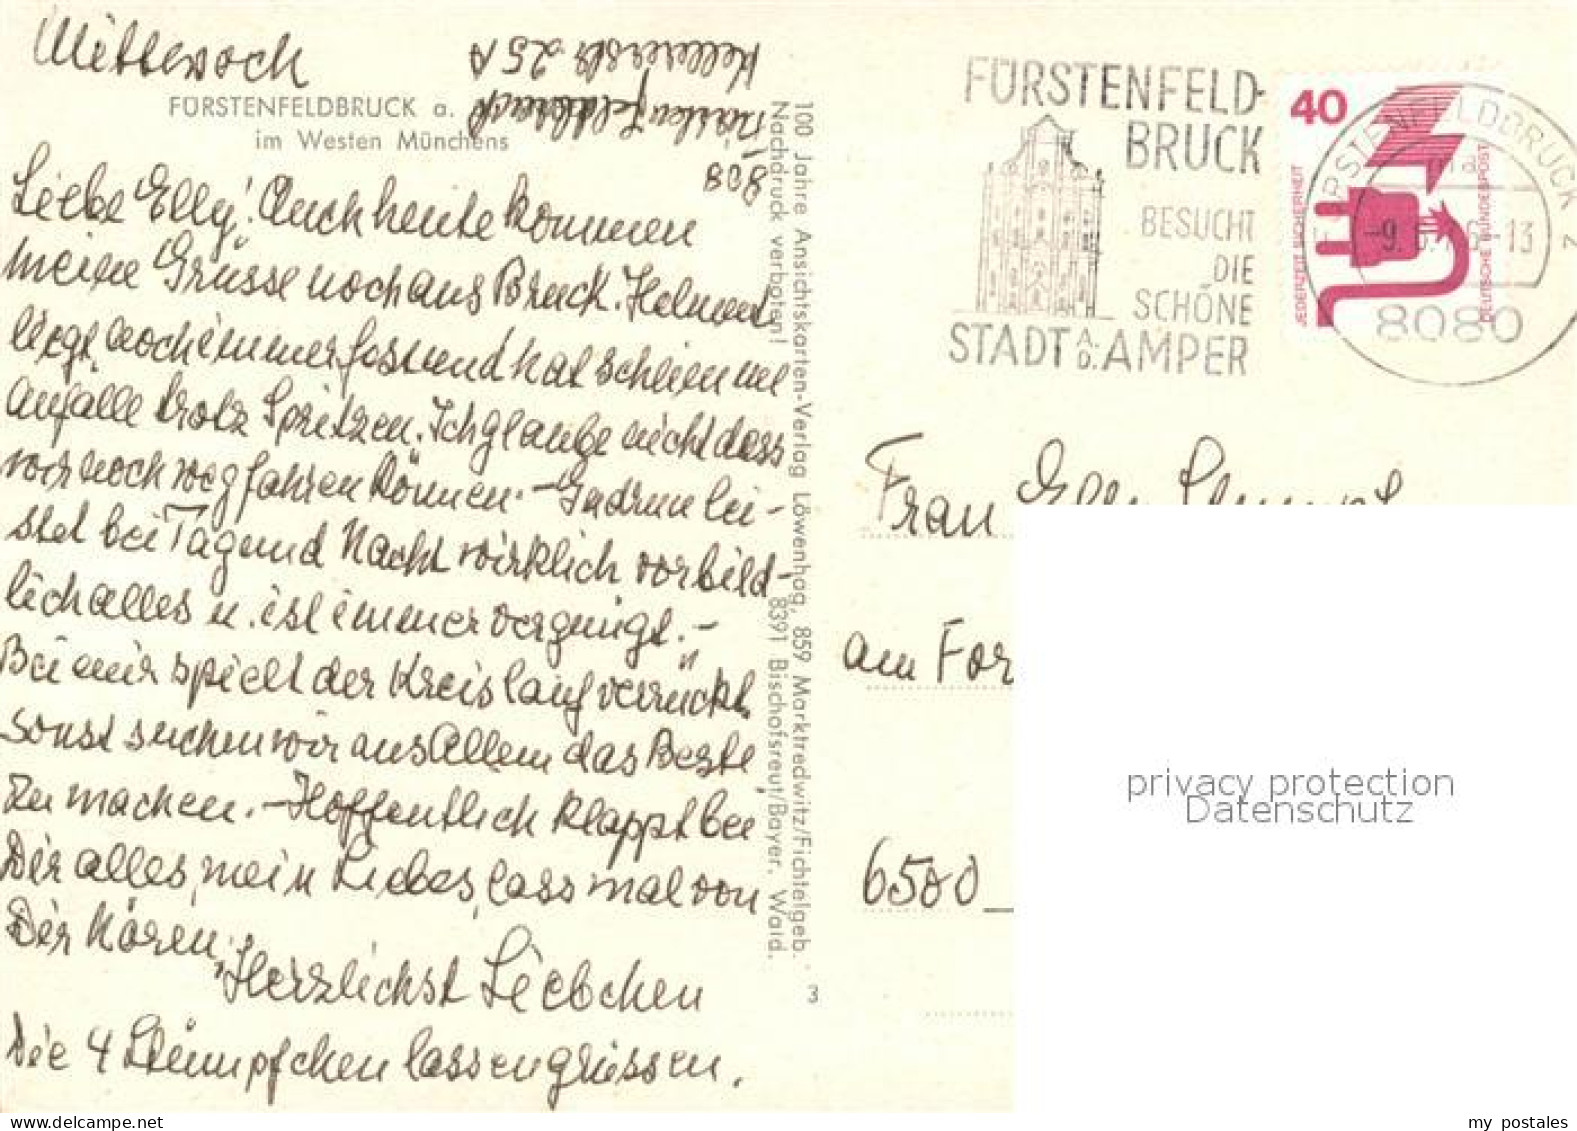 Mittwoch
Kellererstr 25A
Fürstenfeldbruck
808
FÜRSTENFELDBRUCK a.
im Westen Münchens
Liebe Elly! Auch heute kommen
meine Grüsse noch aus Bruck. Helmut
liegt noch immer fest und hat schlimme
Anfälle trotz Spritzen. Ich glaube nicht dass
wir noch wegfahren können. - Gudrun lei-
stet bei Tag und Nacht wirklich vorbild-
lich alles u. ist immer vergnügt. -
Bei mir spielt der Kreislauf "verrückt,
sonst suchen wir aus Allem das Beste
zu machen. - Hoffentlich klappt bei
Dir alles, mein Liebes, lass mal von
Dir hören,
Herzlichst Liebchen
Die 4 Stümpfchen lassen grüssen.
100 Jahre Ansichtskarten-Verlag Löwenhag, 859 Marktredwitz/Fichtelgeb.
Nachdruck verboten! 8391 Bischofsreut/Bayer. Wald.
3
FÜRSTENFELD-
BRUCK
BESUCHT
DIE
SCHÖNE
STADT A. D. AMPER
40
JEDERZEIT SICHERHEIT
DEUTSCHE BUNDESPOST
FÜRSTENFELDBRUCK 2
-9. -13
8080
Frau Elly
am For
6500
privacy protection
Datenschutz
my postales